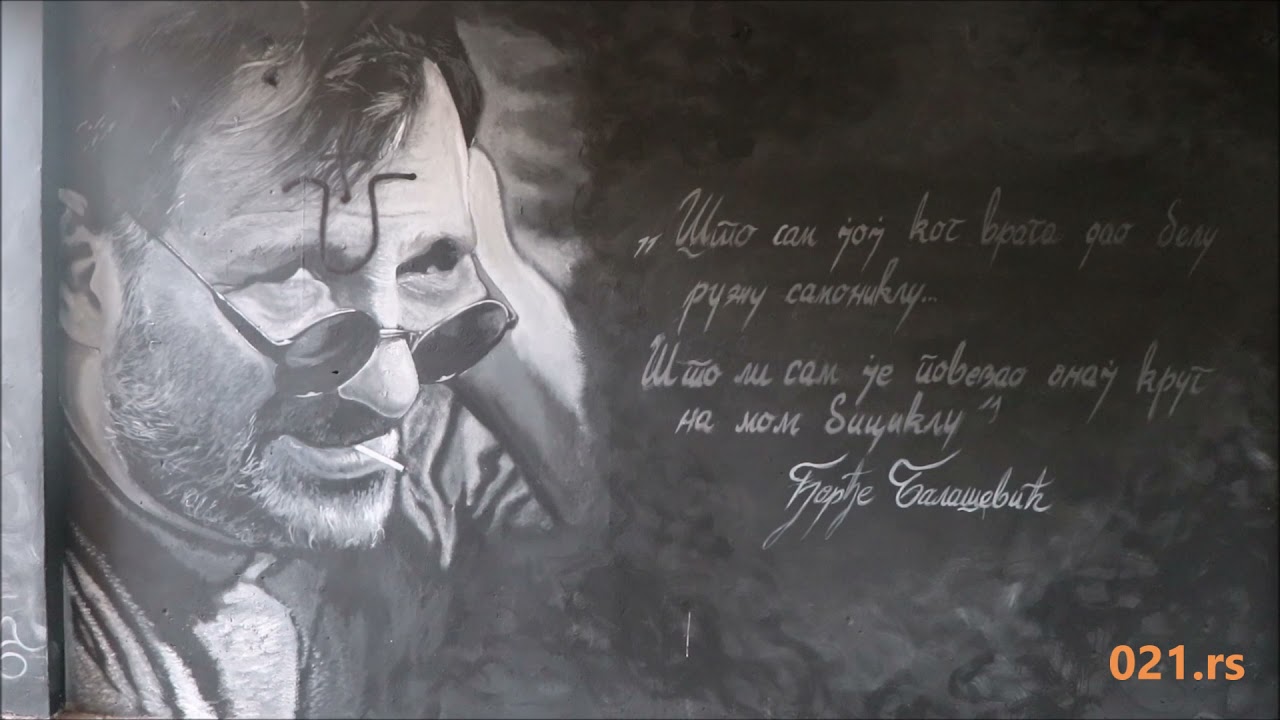 „Што сам јој код врата дао белу
ружу самониклу...
Што ли сам је повезао онај круг
на мом бициклу"
Ђорђе Балашевић
021.rs